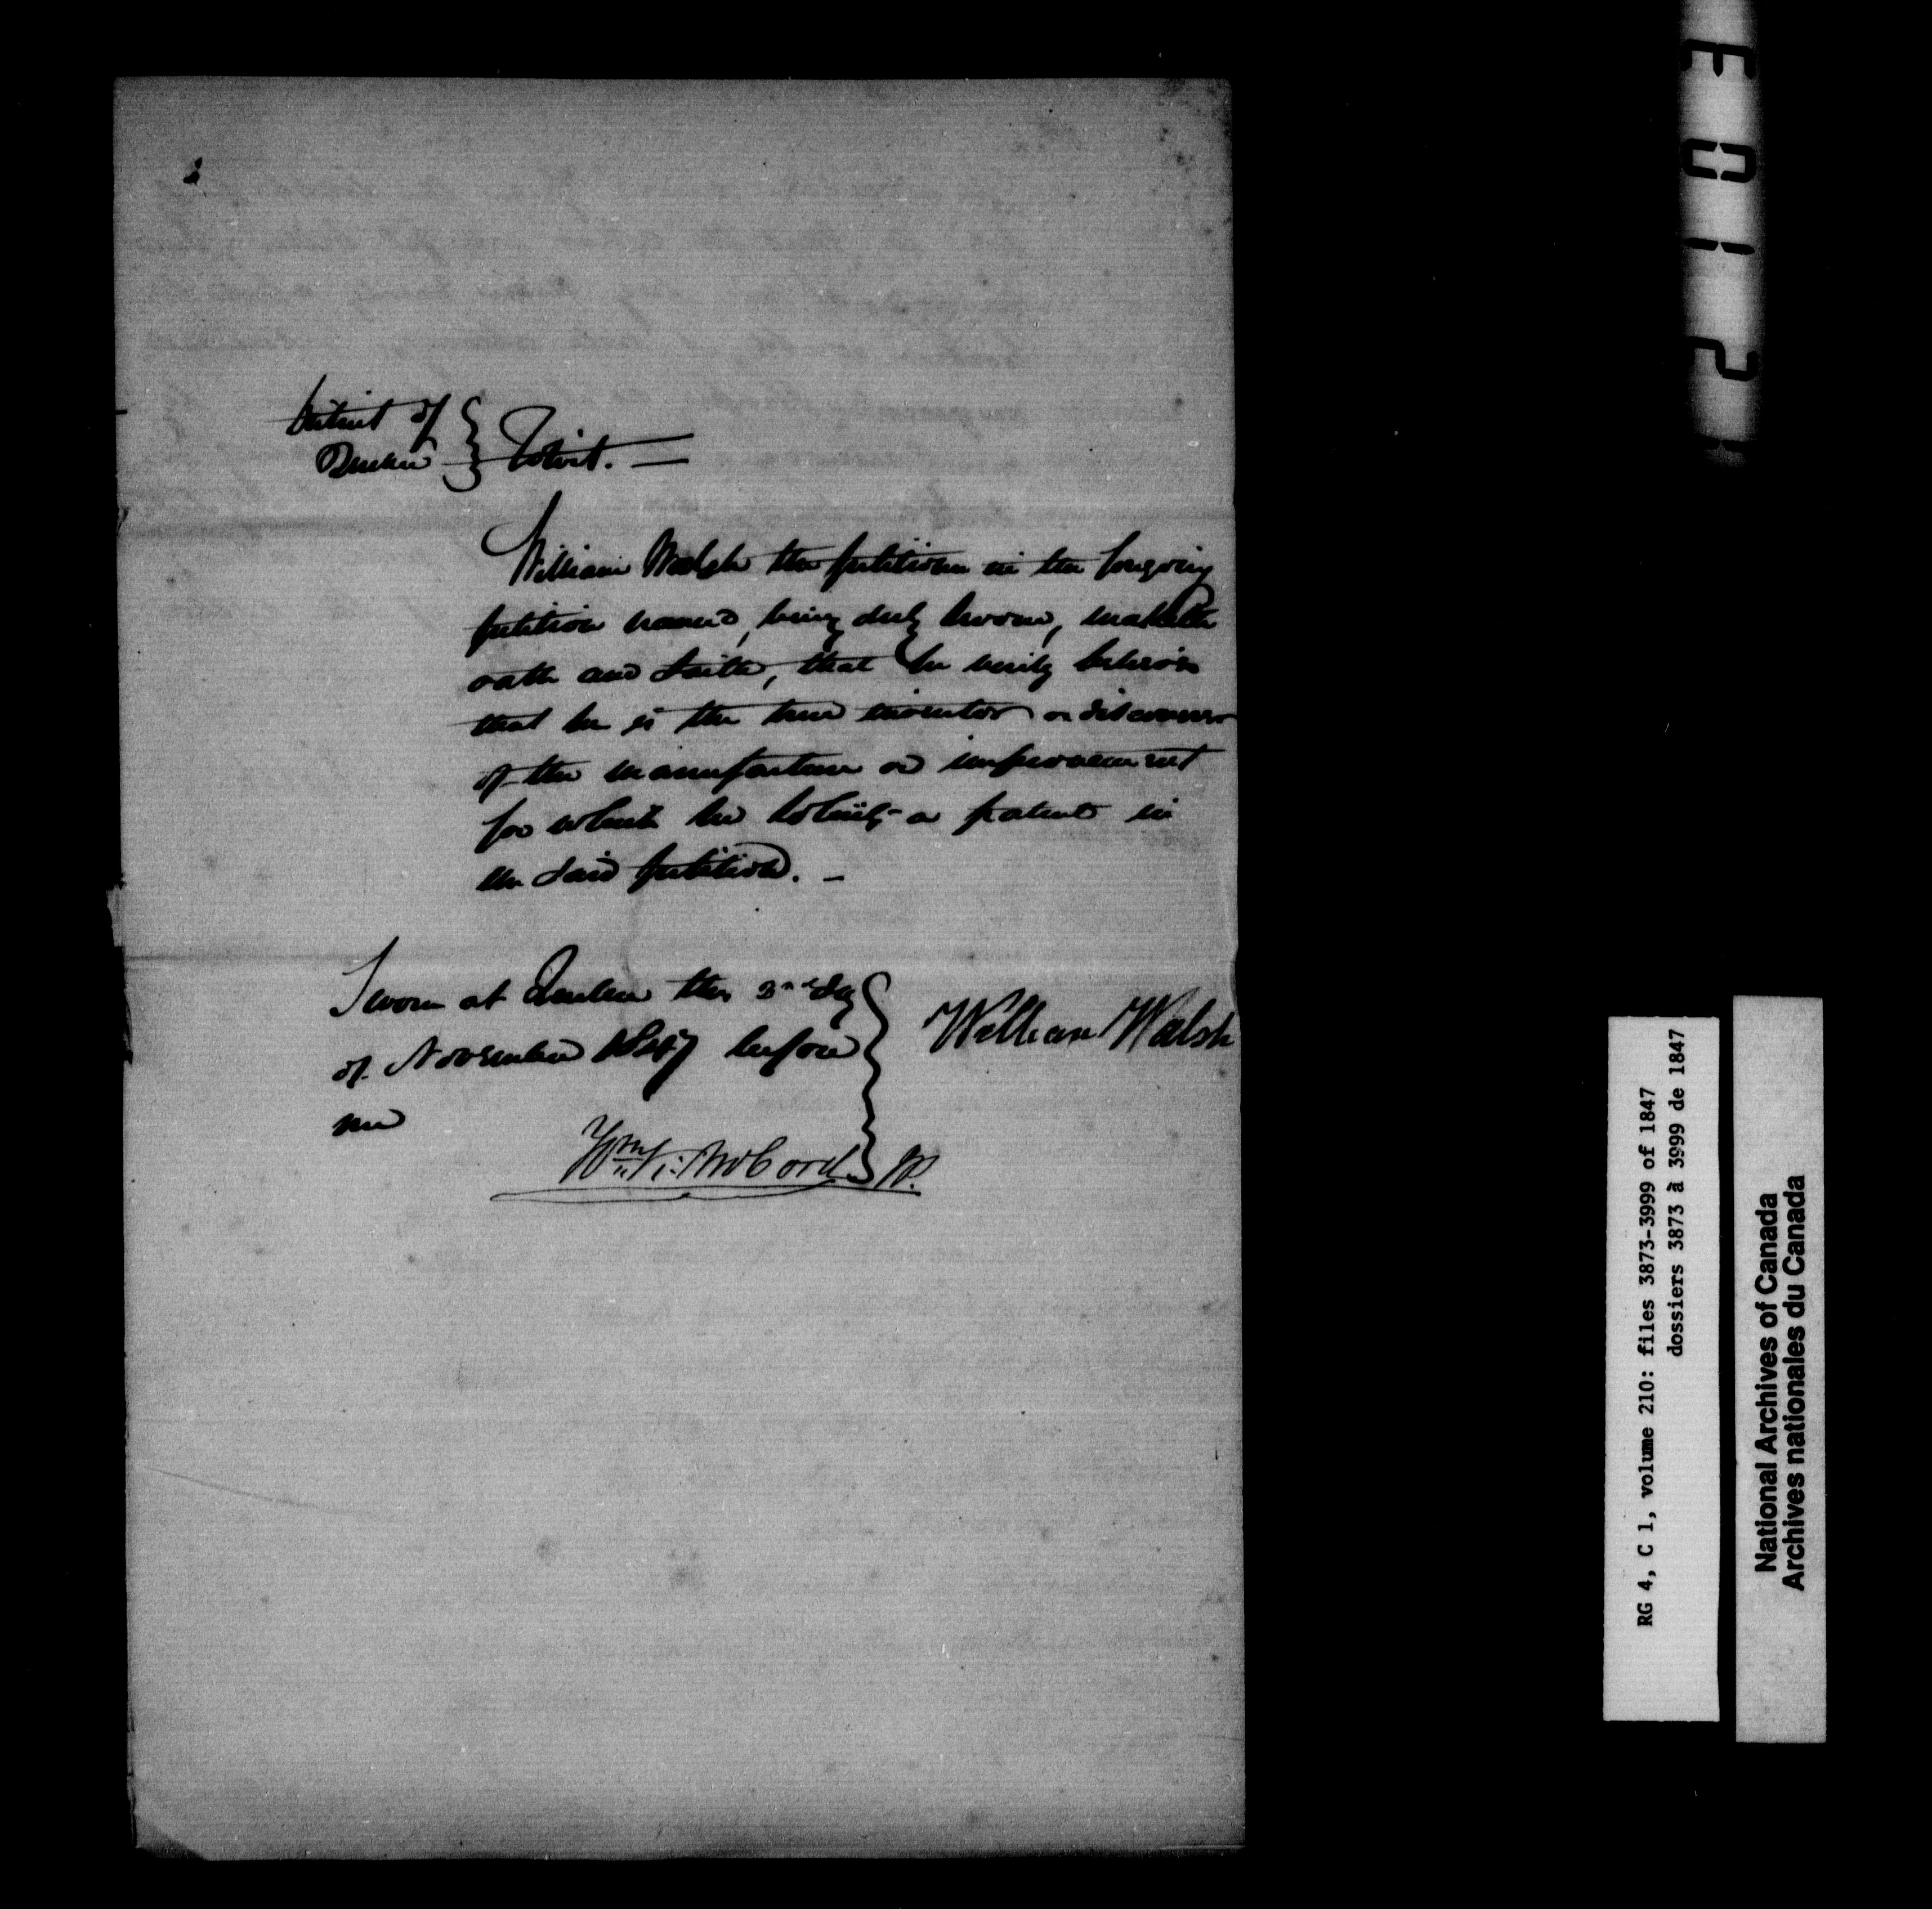 District of
Quebec } Towit. —
William Walsh the petitioner in the foregoing
petition named, being duly sworn, maketh
oath and saith, that he verily believes
that he is the true inventor or discoverer
of the manufacture or improvement
for which he solicits a patent in
the said petition. —
Sworn at Quebec this 2nd day
of November 1847 before
me
William Walsh
Wm. K. McCord JP.
E012
RG 4, C 1, volume 210: files 3873-3999 of 1847
dossiers 3873 à 3999 de 1847
National Archives of Canada
Archives nationales du Canada